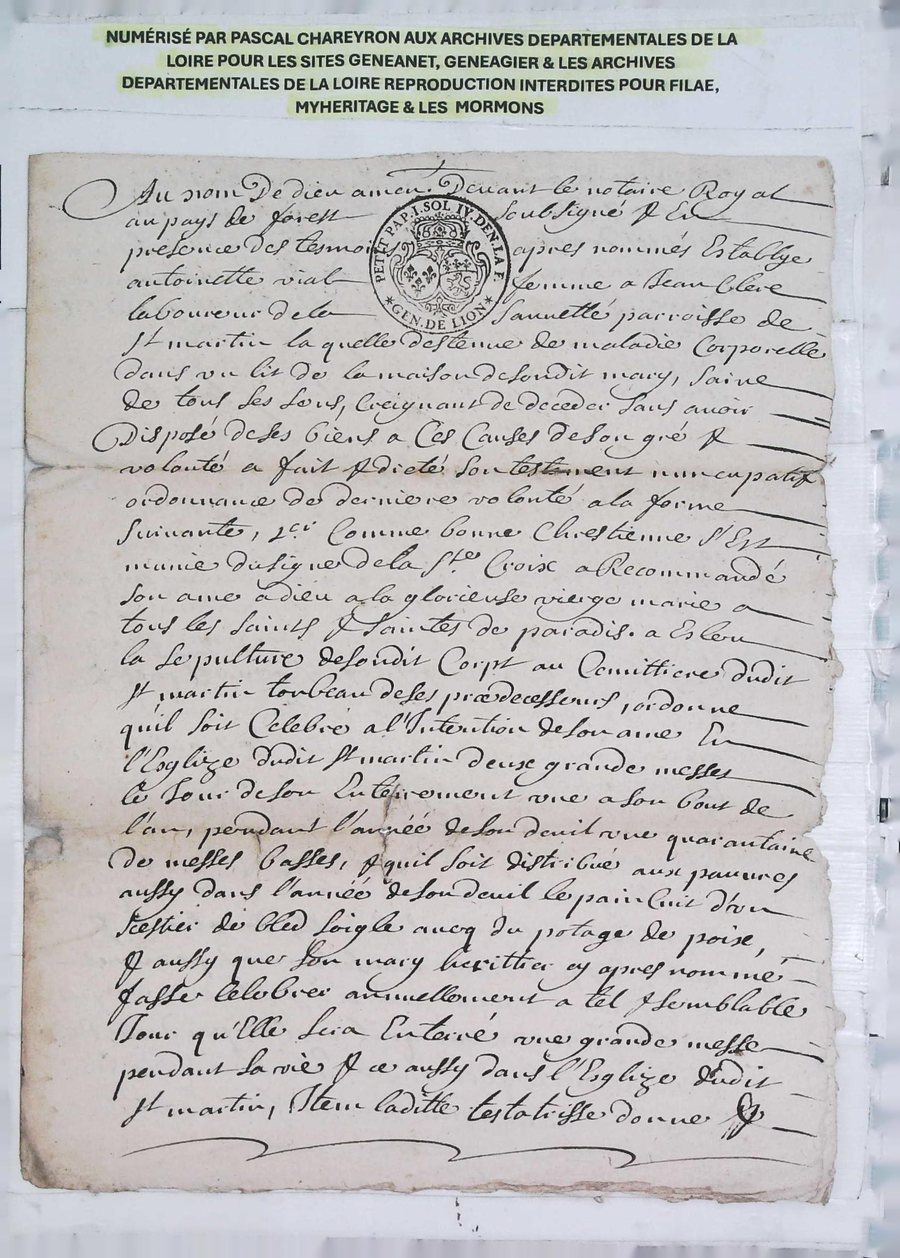 NUMÉRISÉ PAR PASCAL CHAREYRON AUX ARCHIVES DEPARTEMENTALES DE LA
LOIRE POUR LES SITES GENEANET, GENEAGIER & LES ARCHIVES
DEPARTEMENTALES DE LA LOIRE REPRODUCTION INTERDITES POUR FILAE,
MYHERITAGE & LES MORMONS
Au nom De dieu amen. Devant le notaire Royal
au pays de forest soubsigné & En
presence des tesmoins apres nommés Establye
antoinette vial femme a Jean Clere
laboureur de la Sannetté parroisse de
St martin la quelle destenue de maladie Corporelle
dans un lit de la maison de sondit mary, saine
de tous ses sens, Creignant de deceder sans avoir
Disposé de ses biens a Ces Causes de son gré &
volonté a fait & dicté son testement nuncupatif
ordonnance de derniere volonté a la forme
suivante, Comme bonne Chrestienne s'Est
munie du signe de la Ste Croix a Recommandé
son ame a dieu a la glorieuse vierge marie a
tous les saints & saintes de paradis. a Esleu
la sepulture de sondit Corps au Cemittiere dudit
St martin tonbeau de ses prædecesseurs, ordonne
qu'il soit Celebré a l'Intention de son ame En
l'Eglize dudit St martin deux grande messes
le Jour de son Enterrement une a son bout de
l'an, pendant l'année de son deuil une quarantaine
de messes basses, & quil soit distribué aux pauvres
aussy dans l'année de son deuil le pain Cuit d'un
sestier de bled soigle avecq du potage de poise,
& aussy que son mary herittier cy apres nommé
fasse Celebrer annuellement a tel & semblable
Jour qu'Elle sera Enterré une grande messe
pendant sa vie & ce aussy dans l'Eglize dudit
St martin, Item laditte testatrisse donne &
PETIT PAP. I. SOL IV. DEN. LA F.
* GEN. DE LION *